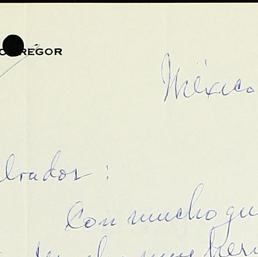 GREGOR
México
lvador :
Con mucho gu